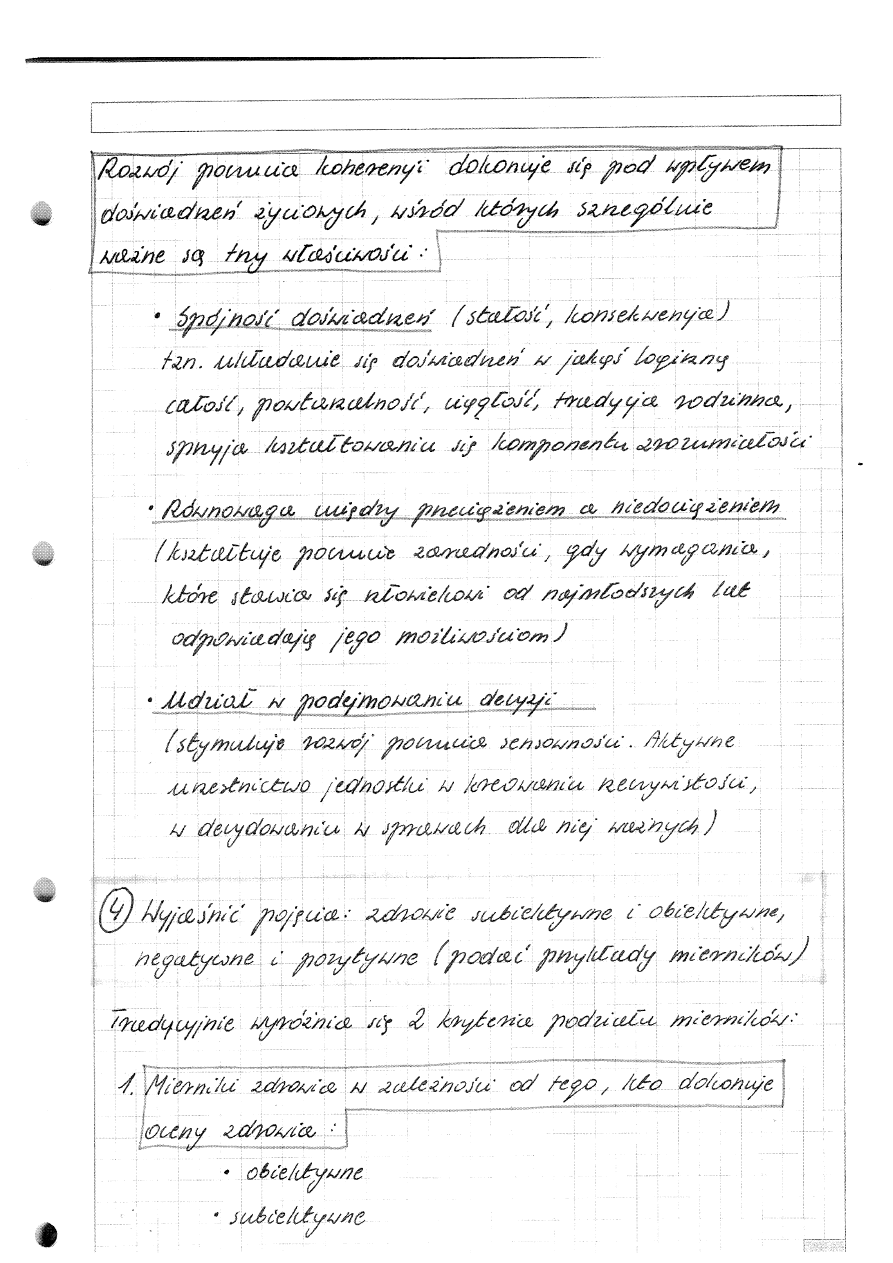 Rozwój poczucia koherencji dokonuje się pod wpływem
doświadczeń życiowych, wśród których szczególnie
ważne są trzy właściwości:
• Spójność doświadczeń (stałość, konsekwencja)
tzn. układanie się doświadczeń w jakąś logiczną
całość, powtarzalność, ciągłość, tradycja rodzinna,
sprzyja kształtowaniu się komponentu zrozumiałości
• Równowaga między przeciążeniem a niedociążeniem
(kształtuje poczucie zaradności, gdy wymagania,
które stawia się człowiekowi od najmłodszych lat
odpowiadają jego możliwościom)
• Udział w podejmowaniu decyzji
(stymuluje rozwój poczucia sensowności. Aktywne
uczestnictwo jednostki w kreowaniu rzeczywistości,
w decydowaniu w sprawach dla niej ważnych)
4 Wyjaśnić pojęcia: zdrowie subiektywne i obiektywne,
negatywne i pozytywne (podać przykłady mierników)
Tradycyjnie wyróżnia się 2 kryteria podziału mierników:
1. Mierniki zdrowia w zależności od tego, kto dokonuje
oceny zdrowia:
• obiektywne
• subiektywne